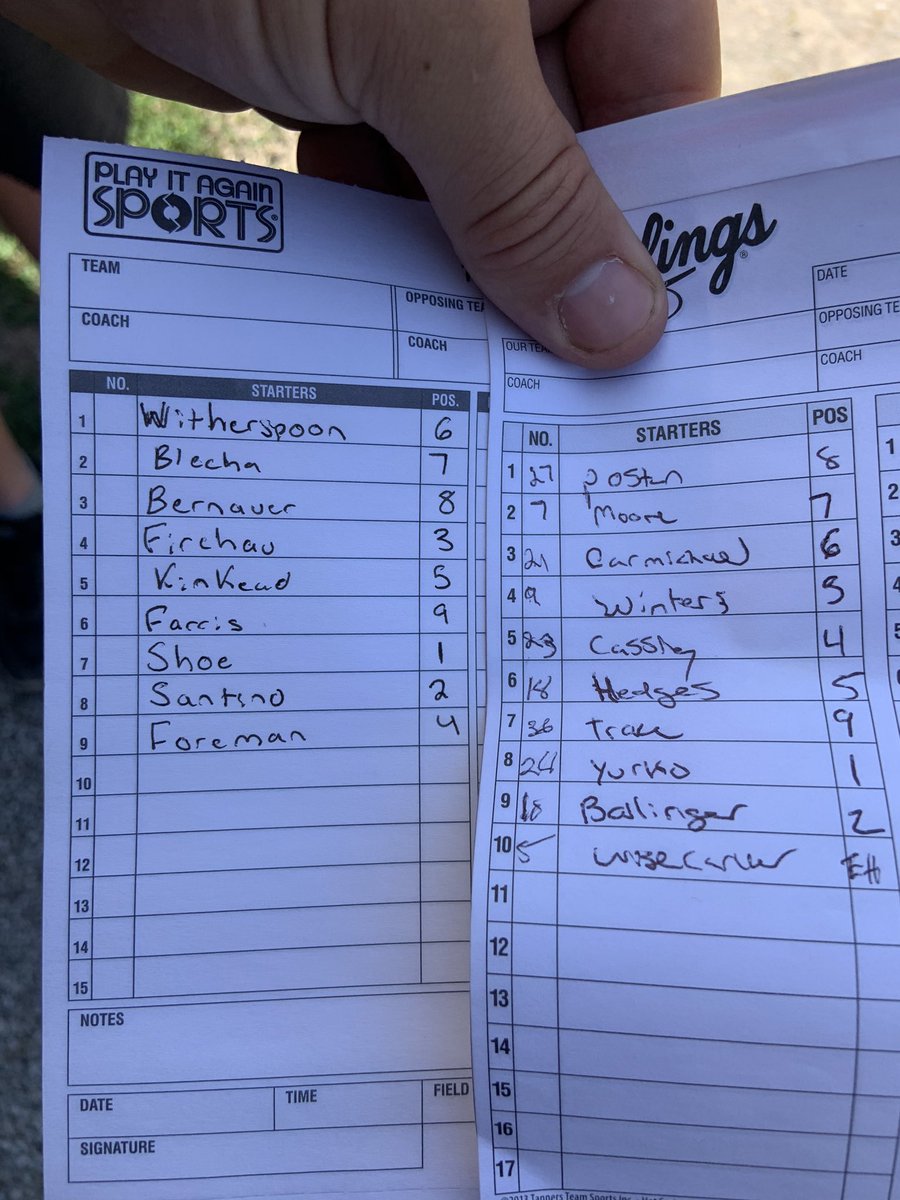 PLAY IT AGAIN
SPORTS®
TEAM
OPPOSING TEA
COACH
COACH
NO. STARTERS POS.
1 Witherspoon 6
2 Blecha 7
3 Bernauer 8
4 Firchau 3
5 Kinkead 5
6 Farris 9
7 Shoe 1
8 Santino 2
9 Foreman 4
10
11
12
13
14
15
NOTES
DATE TIME FIELD
SIGNATURE
lings®
DATE
OUR TEA
OPPOSING TE
COACH
COACH
NO. STARTERS POS
1 27 Posten 8 1
2 7 Moore 7 2
3 21 Carmichael 6 3
4 9 Winters 3 4
5 23 4 5
6 18 Hedges 5
7 36 9
8 24 Yurko 1
9 18 Ballinger 2
10 5 Wisecarver EH
11
12
13
14
15
16
17
©2013 Tanners Team Sports Inc.